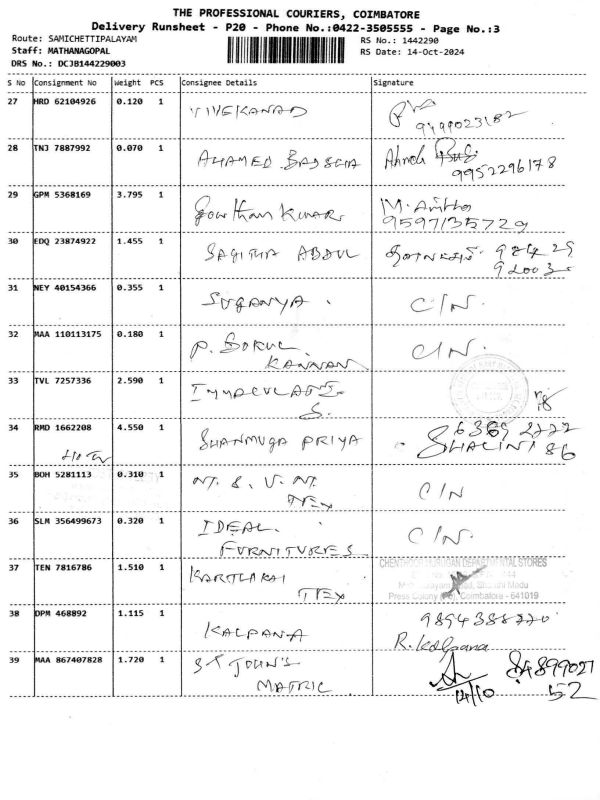 THE PROFESSIONAL COURIERS, COIMBATORE
Delivery Runsheet - P20 - Phone No.:0422-3505555 - Page No.:3
Route: SAMICHETTIPALAYAM
RS No.: 1442290
Staff: MATHANAGOPAL
RS Date: 14-Oct-2024
DRS No.: DCJB144229003
S No Consignment No Weight PCS Consignee Details Signature
27 HRD 62104926 0.120 1 VIVEKANAD
28 TNJ 7887992 0.070 1 AHAMED BADSHA
9952296178
29 GPM 5368169 3.795 1 Gowtham Kumar. M. Amitha
9597135729
30 EDQ 23874922 1.455 1 SAGITHA ABDUL 98429
92003
31 NEY 40154366 0.355 1 SUGANYA . C/N.
32 MAA 110113175 0.180 1 P. GOKUL C/N.
KANNAN
33 TVL 7257336 2.590 1 IMMACULATE
S.
34 RMD 1662208 4.550 1 SHANMUGA PRIYA 6369 2222
SHALINI 86
35 BOH 5281113 0.310 1 C/N
TEX
36 SLM 356499673 0.320 1 IDEAL C/N.
FURNITURES
37 TEN 7816786 1.510 1 KARTHIKAI CHENTHOOR MURUGAN DEPARTMENTAL STORES
TEX Coimbatore - 641019
38 DPM 468892 1.115 1 KALPANA 9894388220
R. Kalpana
39 MAA 867407828 1.720 1 ST JOHN'S 84899021
MATRIC 14/10 52